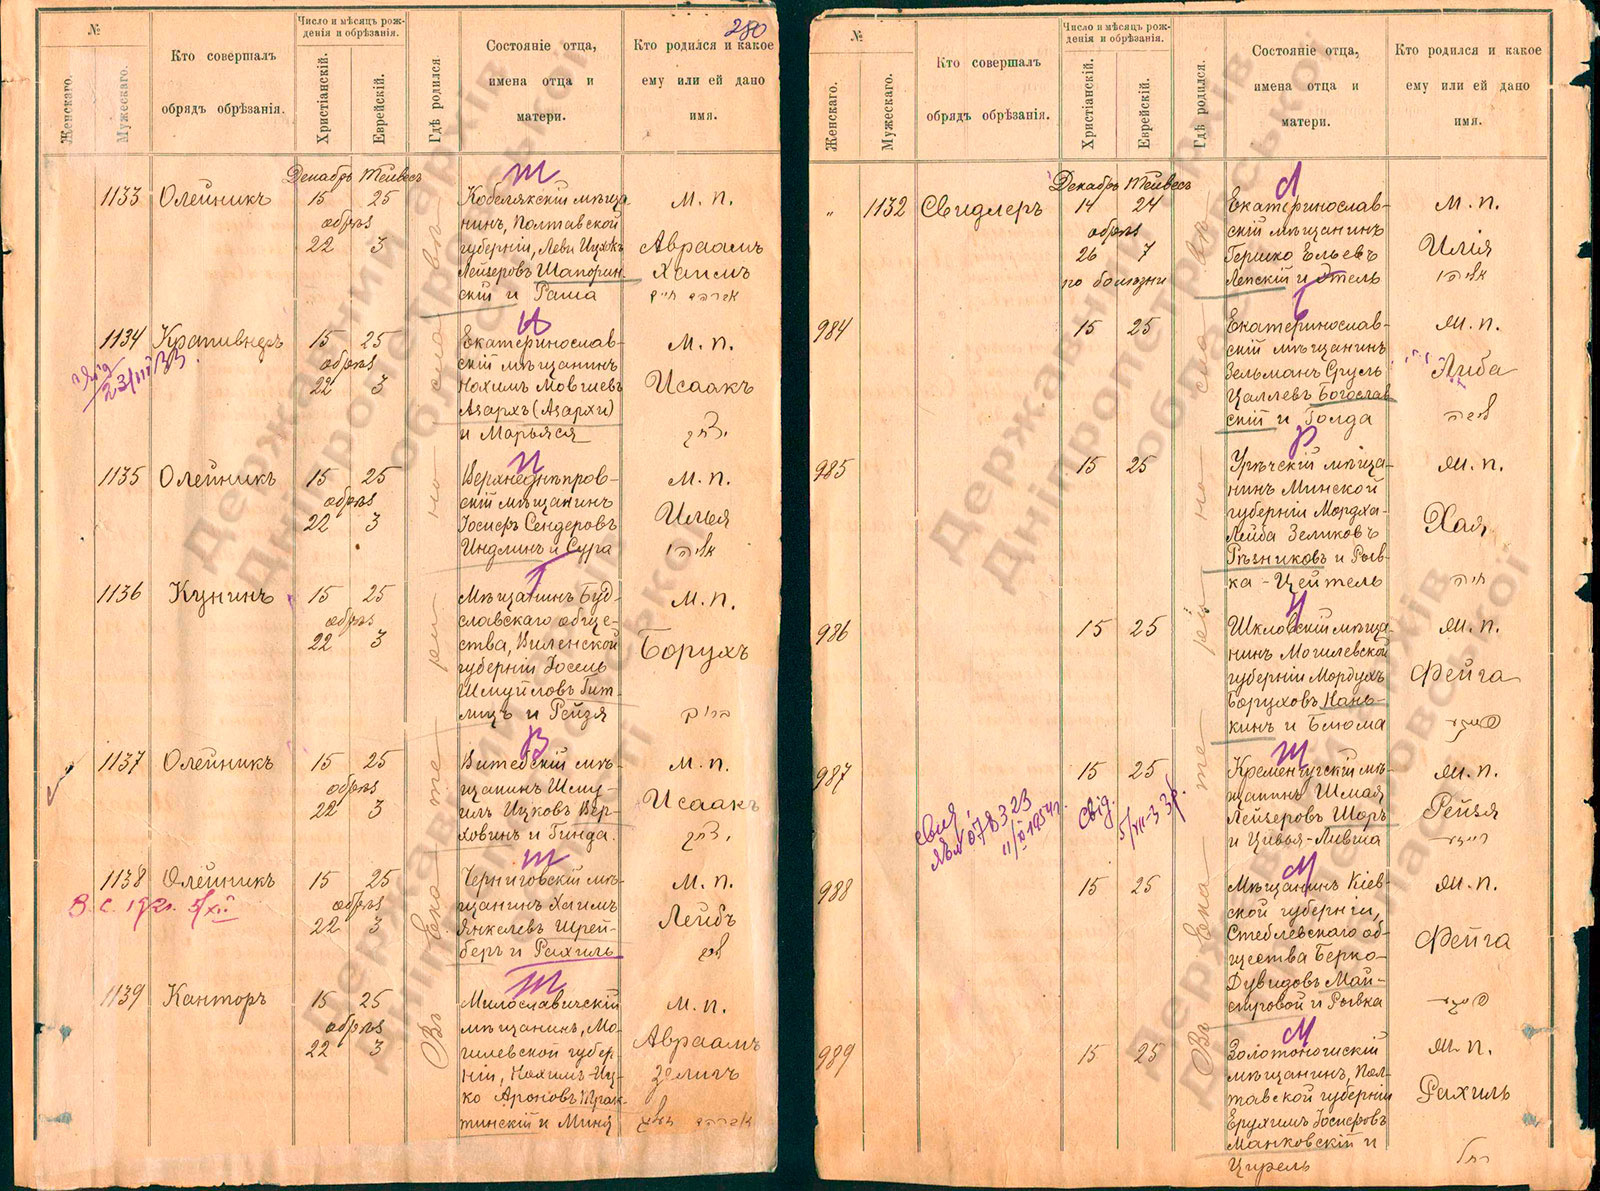 280
№
Женскаго.
Мужескаго.
Кто совершалъ
обрядъ обрѣзанія.
Число и мѣсяцъ рож-
денія и обрѣзанія.
Христіанскій.
Еврейскій.
Гдѣ родился.
Состояніе отца,
имена отца и
матери.
Кто родился и какое
ему или ей дано
имя.
Декабрь Тейвесъ
Въ Екате ри но сла вѣ
1133 Олейникъ 15 25
обрѣз
22 3
Кобелякскій мѣща
нинъ, Полтавской
губерніи, Леви Ицхокъ
Лейзеровъ Шапорин
скій и Раша
м. п.
Авраамъ
Хаимъ
אברהם חיים
1134 Крапивнеръ 15 25
обрѣз
22 3
23/III 33
Екатеринослав-
скій мѣщанинъ
Нохимъ Мовшевъ
Азархъ (Азархи)
и Марьяся
м. п.
Исаакъ
יצחק
1135 Олейникъ 15 25
обрѣз
22 3
Верхнеднѣпров-
скій мѣщанинъ
Іосифъ Сендеровъ
Индлинъ и Сура
м. п.
Илья
אליהו
1136 Кунинъ 15 25
обрѣз
22 3
Мѣщанинъ Буд-
славскаго обще-
ства, Виленской
губерніи Іосель
Шмуйловъ Гит-
лицъ и Рейзя
м. п.
Борухъ
ברוך
1137 Олейникъ 15 25
обрѣз
22 3
Витебскій мѣ-
щанинъ Шму-
илъ Ицковъ Вер-
ховинъ и Гинда.
м. п.
Исаакъ
יצחק
1138 Олейникъ 15 25
обрѣз
22 3
Черниговскій мѣ-
щанинъ Хаимъ
Янкелевъ Шрей-
беръ и Рахиль
м. п.
Лейбъ
ליב
1139 Канторъ 15 25
обрѣз
22 3
Милославичскій
мѣщанинъ, Мо-
гилевской губер-
ніи, Нохимъ-Иц-
ко Ароновъ Трак-
тинскій и Миня
м. п.
Авраамъ
Зеликъ
אברהם זעליג
№
Женскаго.
Мужескаго.
Кто совершалъ
обрядъ обрѣзанія.
Число и мѣсяцъ рож-
денія и обрѣзанія.
Христіанскій.
Еврейскій.
Гдѣ родился.
Состояніе отца,
имена отца и
матери.
Кто родился и какое
ему или ей дано
имя.
Декабрь Тейвесъ
Въ Екате ри но сла вѣ
„ 1132 Свидлеръ 14 24
обрѣз
26 7
по болѣзни
Екатеринослав-
скій мѣщанинъ
Гершко Ельевъ
Лепскій и Этель
м. п.
Илія
אליהו
984 15 25
Екатеринослав-
скій мѣщанинъ
Зельманъ Сруль
Цаллевъ Богослав
скій и Голда
м. п.
Либа
ליבה
985 15 25
Урѣчскій мѣща-
нинъ Минской
губерніи Мордха-
Лейба Зеликовъ
Рѣзниковъ и Рыв-
ка-Цейтель
м. п.
Хая
חיה
986 15 25
Шкловскій мѣща-
нинъ Могилевской
губерніи Мордухъ
Боруховъ Кань-
кинъ и Блюма
м. п.
Фейга
פייגע
987 15 25
Свід.
5/VII-33р.
Кременчугскій мѣ-
щанинъ Шмая
Лейзеровъ Шоръ
и Цивья-Ливша
м. п.
Рейзя
רייזע
988 15 25
Мѣщанинъ Кіев-
ской губерніи,
Стеблевскаго об-
щества Берко-
Дувидовъ Май-
стровой и Рывка
м. п.
Фейга
פייגע
989 15 25
Золотоношскій
мѣщанинъ, Пол-
тавской губерніи
Ерухимъ Іосифовъ
Манковскій и
Цирель
м. п.
Рахиль
רחל
Державний архів
Дніпропетровської
області